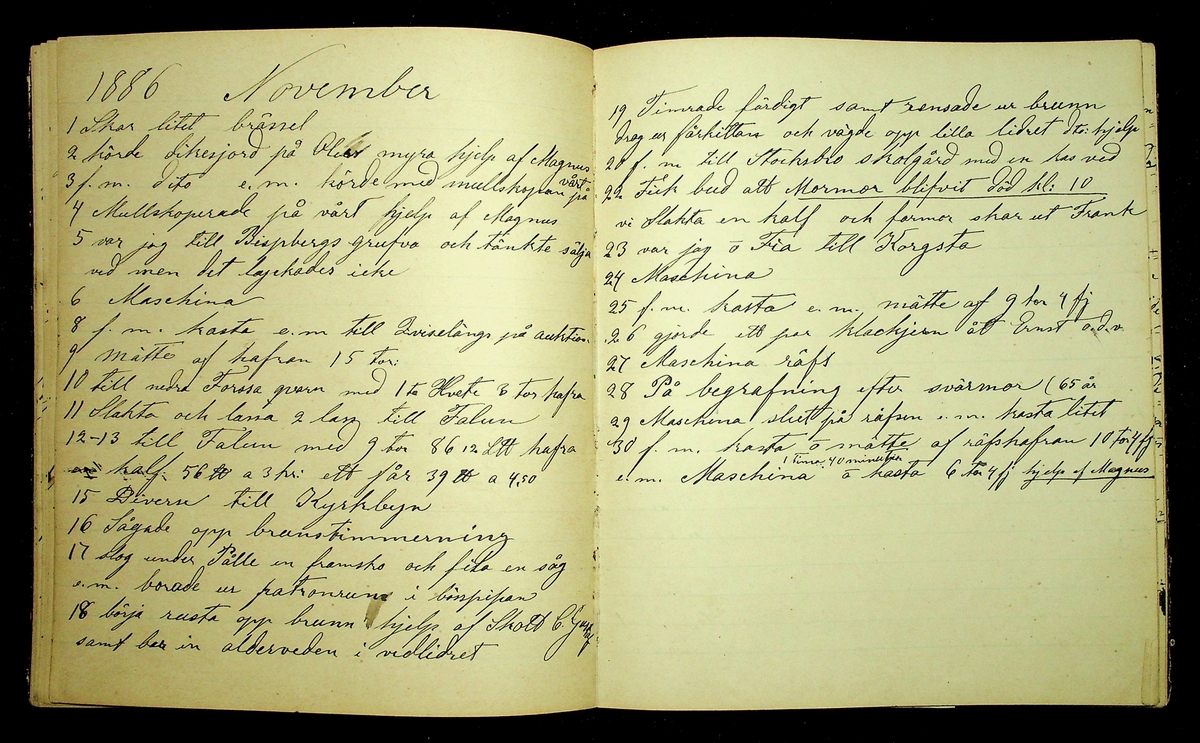 1886 November
1 Skar litet brössel
2 körde dikesjord på myra hjelp af Magnus
3 f. m. dito e. m. körde med mullskopan på vårt
4 Mullskoperade på vårt hjelp af Magnus
5 var jag till Bispbergs grufva och tänkte sälja
ved men det lyckades icke
6 Maschina
8 f. m. kasta e. m till på auktion
9 mätte af hafran 15 tor:
10 till nedra Forssa qvarn med 1 to Hvete 3 tor hafra
11 Slakta och lassa 2 lass till Falun
12-13 till Falun med 9 tor 86 12 Ltt hafra
kalf. 56 tt a 3 kr: ett får 39 tt a 4,50
15 Diverse till Kyrkbyn
16 Sågade opp brunstimmerning
17 slog under Pålle en framsko och fila en såg
e. m. borade ur patronrum i bösspipan
18 börja rusta opp brunn hjelp af Skott C. G.
samt bar in alderveden i vidlidret
19 Timrade färdigt samt rensade ur brunn
drog ur fårkittan och vägde opp lilla lidret dito: hjelp
21 f. m. till Stocksbro skolgård med en kas ved
22 Fick bud att Mormor blifvit död kl: 10
vi Slakta en kalf och farmor skar ut Frank
23 var jag o Fia till Korgsta
24 Maschina
25 f. m. kasta e. m. mätte af 9 tor 4 fj
26 gjorde ett par klackjern åt Ernst o.d.v
27 Maschina räfs
28 På begrafning efter svärmor (65 år
29 Maschina slut på räfsen e. m. kasta litet
30 f. m. kasta o mätte af räfshafran 10 tor 4 fj
1 timme 40 minuter
e. m. Maschina o kasta 6 tor 4 fj hjelp af Magnus